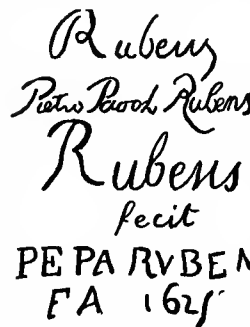 Rubens
Pietro Pauol Rubens
Rubens
fecit
PE PA RVBEN
FA 1625